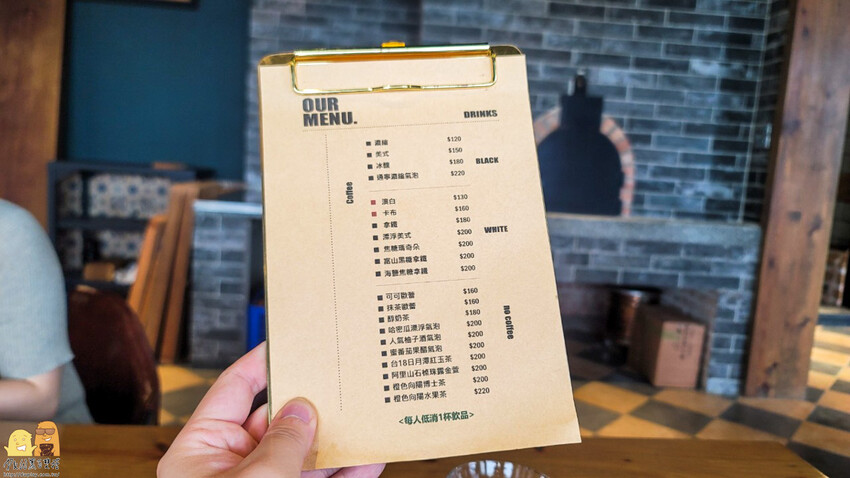 OUR
MENU.
DRINKS
Coffee
濃縮 $120
美式 $150
冰釀 $180
通寧濃縮氣泡 $220
BLACK
澳白 $130
卡布 $160
拿鐵 $180
漂浮美式 $200
焦糖瑪奇朵 $200
富山黑糖拿鐵 $200
海鹽焦糖拿鐵 $200
WHITE
可可歐蕾 $160
抹茶歐蕾 $160
醇奶茶 $180
哈密瓜漂浮氣泡 $200
人氣柚子酒氣泡 $200
蜜番茄果醋氣泡 $200
台18日月潭紅玉茶 $200
阿里山石棹珠露金萱 $200
橙色向陽博士茶 $200
橙色向陽水果茶 $220
no coffee
<每人低消1杯飲品>